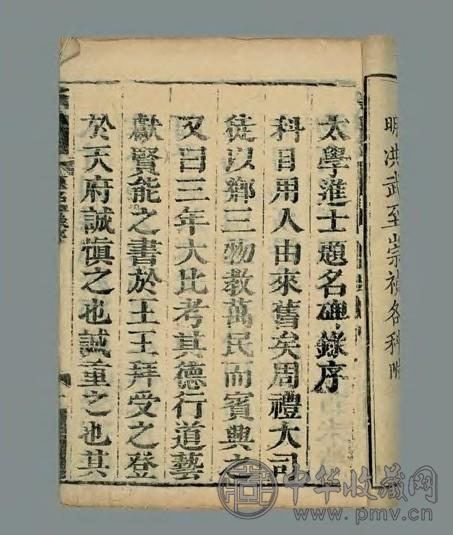 明洪武至崇禎各科
太學進士題名碑錄序
科目用人由來舊矣周禮大司
徒以鄉三物教萬民而賓興之
又曰三年大比考其德行道藝
獻賢能之書於王王拜受之登
於天府誠慎之也誠重之也其
中华收藏网
www.pmv.cn